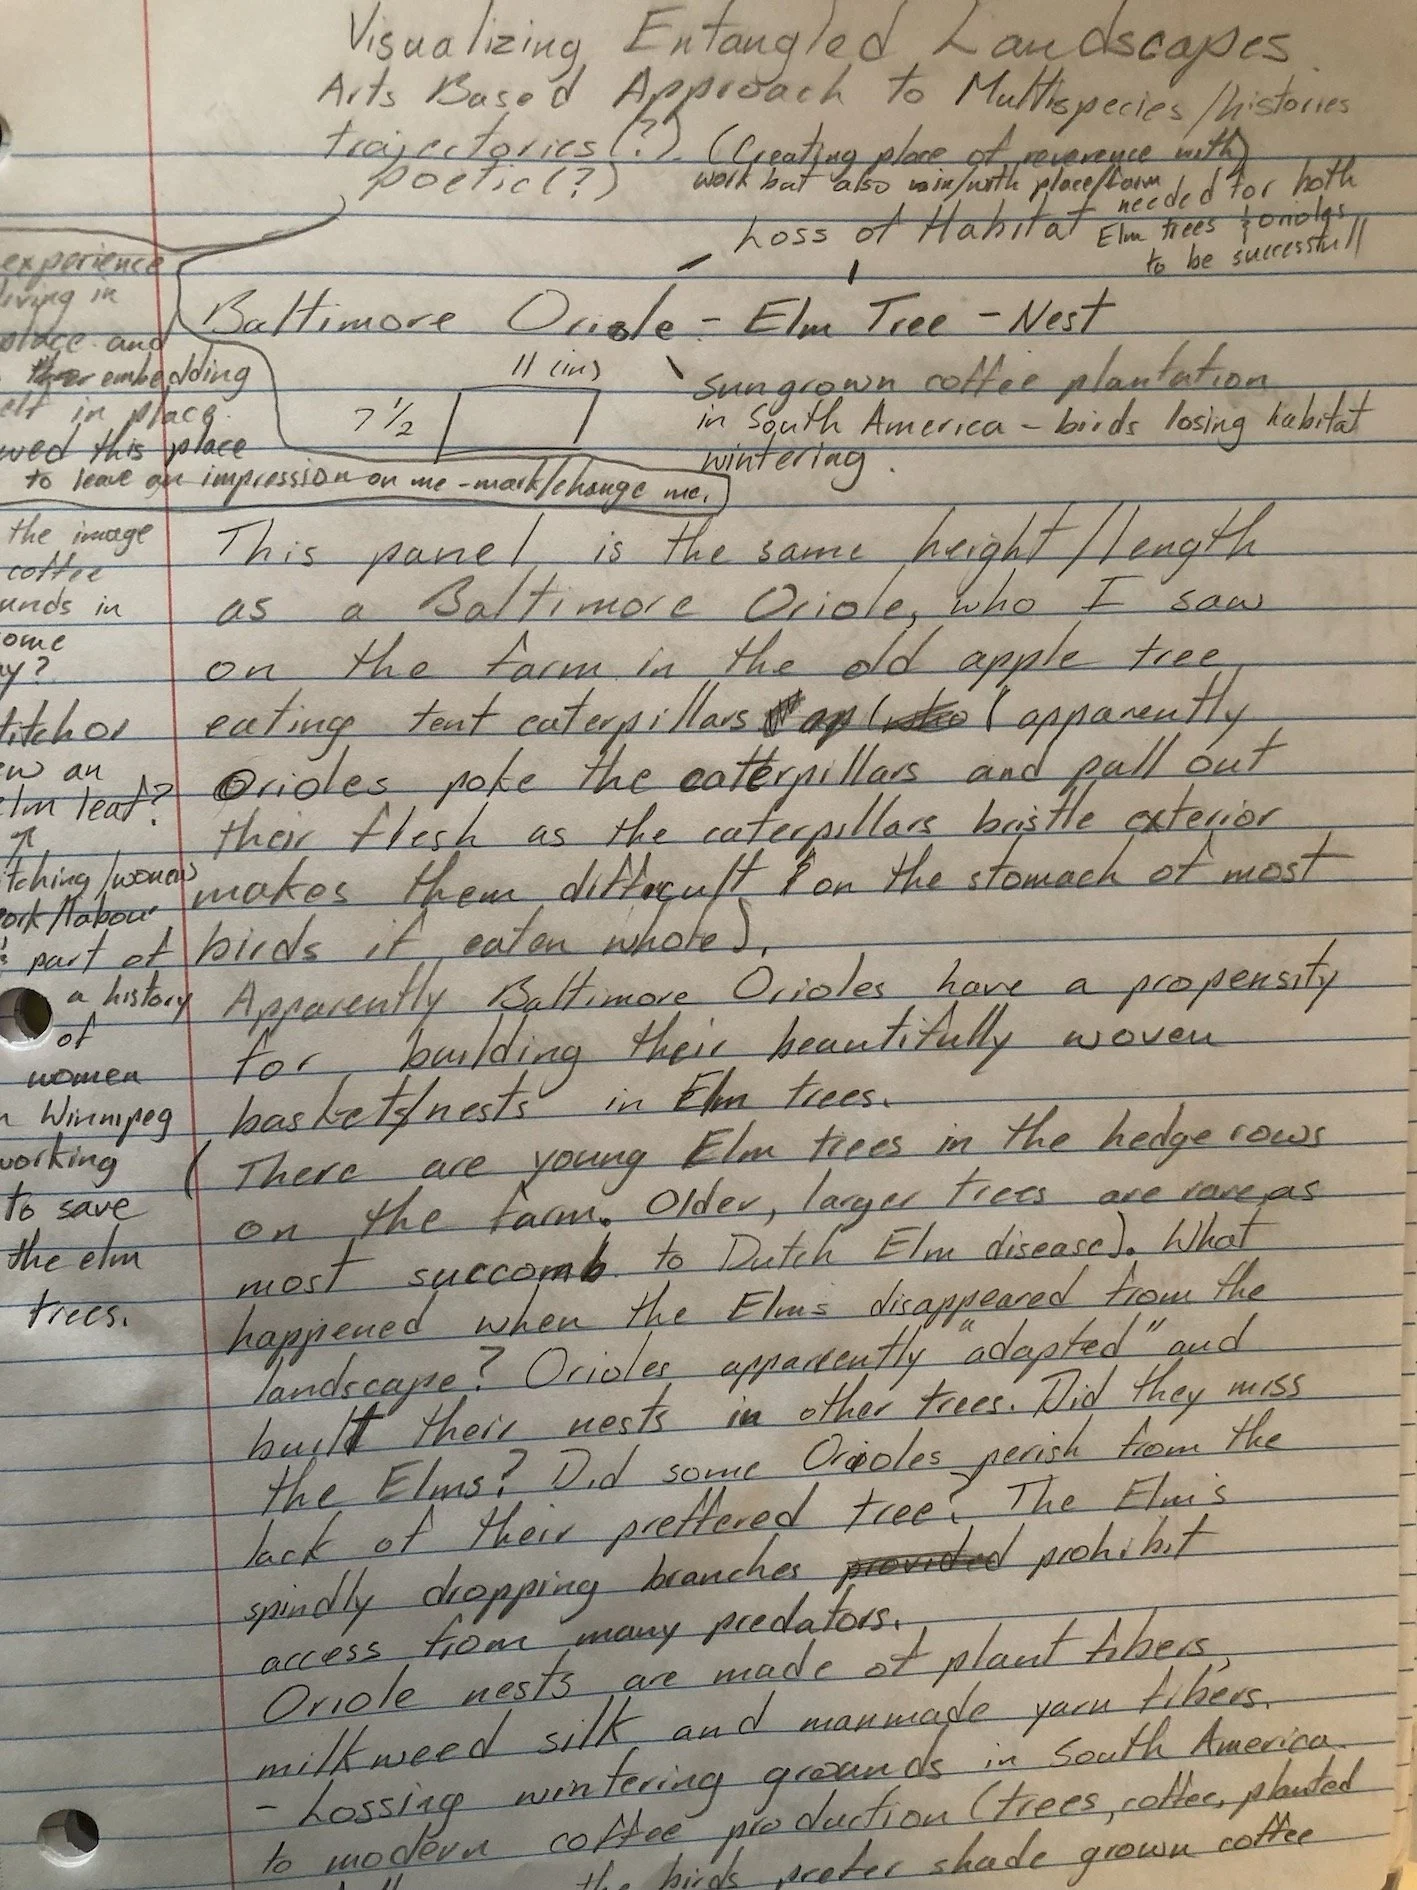 Visualizing Entangled Landscapes
Arts Based Approach to Multispecies/histories
trajectories(?).
poetic(?)
(Creating place of reverence with)
work but also w in/with place/farm
Loss of Habitat
needed for both
Elm trees & orioles
to be successfull
Baltimore Oriole - Elm Tree - Nest
11 (in)
7 1/2
sungrown coffee plantation
in South America - birds losing habitat
wintering.
experience
living in
place and
embedding
in place.
this place
to leave an impression on me - mark/change me.
the image
coffee
in
This panel is the same height/length
as a Baltimore Oriole, who I saw
on the farm in the old apple tree
eating tent caterpillars (apparently
Orioles poke the caterpillars and pull out
their flesh as the caterpillars bristle exterior
makes them difficult on the stomach of most
birds if eaten whole).
Apparently Baltimore Orioles have a propensity
for building their beautifully woven
baskets/nests in Elm trees.
(There are young Elm trees in the hedge rows
on the farm. Older, larger trees are rare as
most succomb to Dutch Elm disease). What
happened when the Elms disappeared from the
landscape? Orioles apparently "adapted" and
built their nests in other trees. Did they miss
the Elms? Did some Orioles perish from the
lack of their preffered tree? The Elm's
spindly dropping branches provided prohibit
access from many predators.
Oriole nests are made of plant fibers,
milkweed silk and manmade yarn fibers.
- Lossing wintering grounds in South America
to modern coffee production (trees, coffee, planted
the birds prefer shade grown coffee
an
elm leaf?
/women
/labour
part of
a history
of
women
Winnipeg
working
to save
the elm
trees.